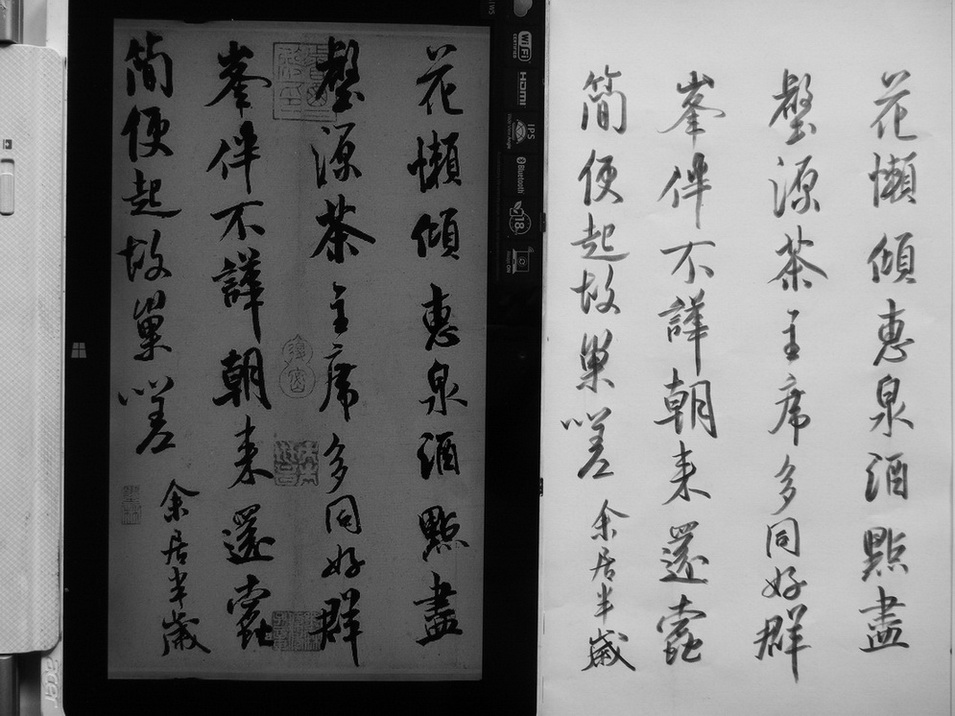 花懶傾惠泉酒點盡
壑源茶主席多同好群
峯伴不譁朝来還蠹
簡便起故巢嗟
余居半歲
花懶傾惠泉酒點盡
壑源茶主席多同好群
峯伴不譁朝来還蠹
簡便起故巢嗟
余居半歲
WiFi
CERTIFIED
HDMI
IPS
Bluetooth
18
acer